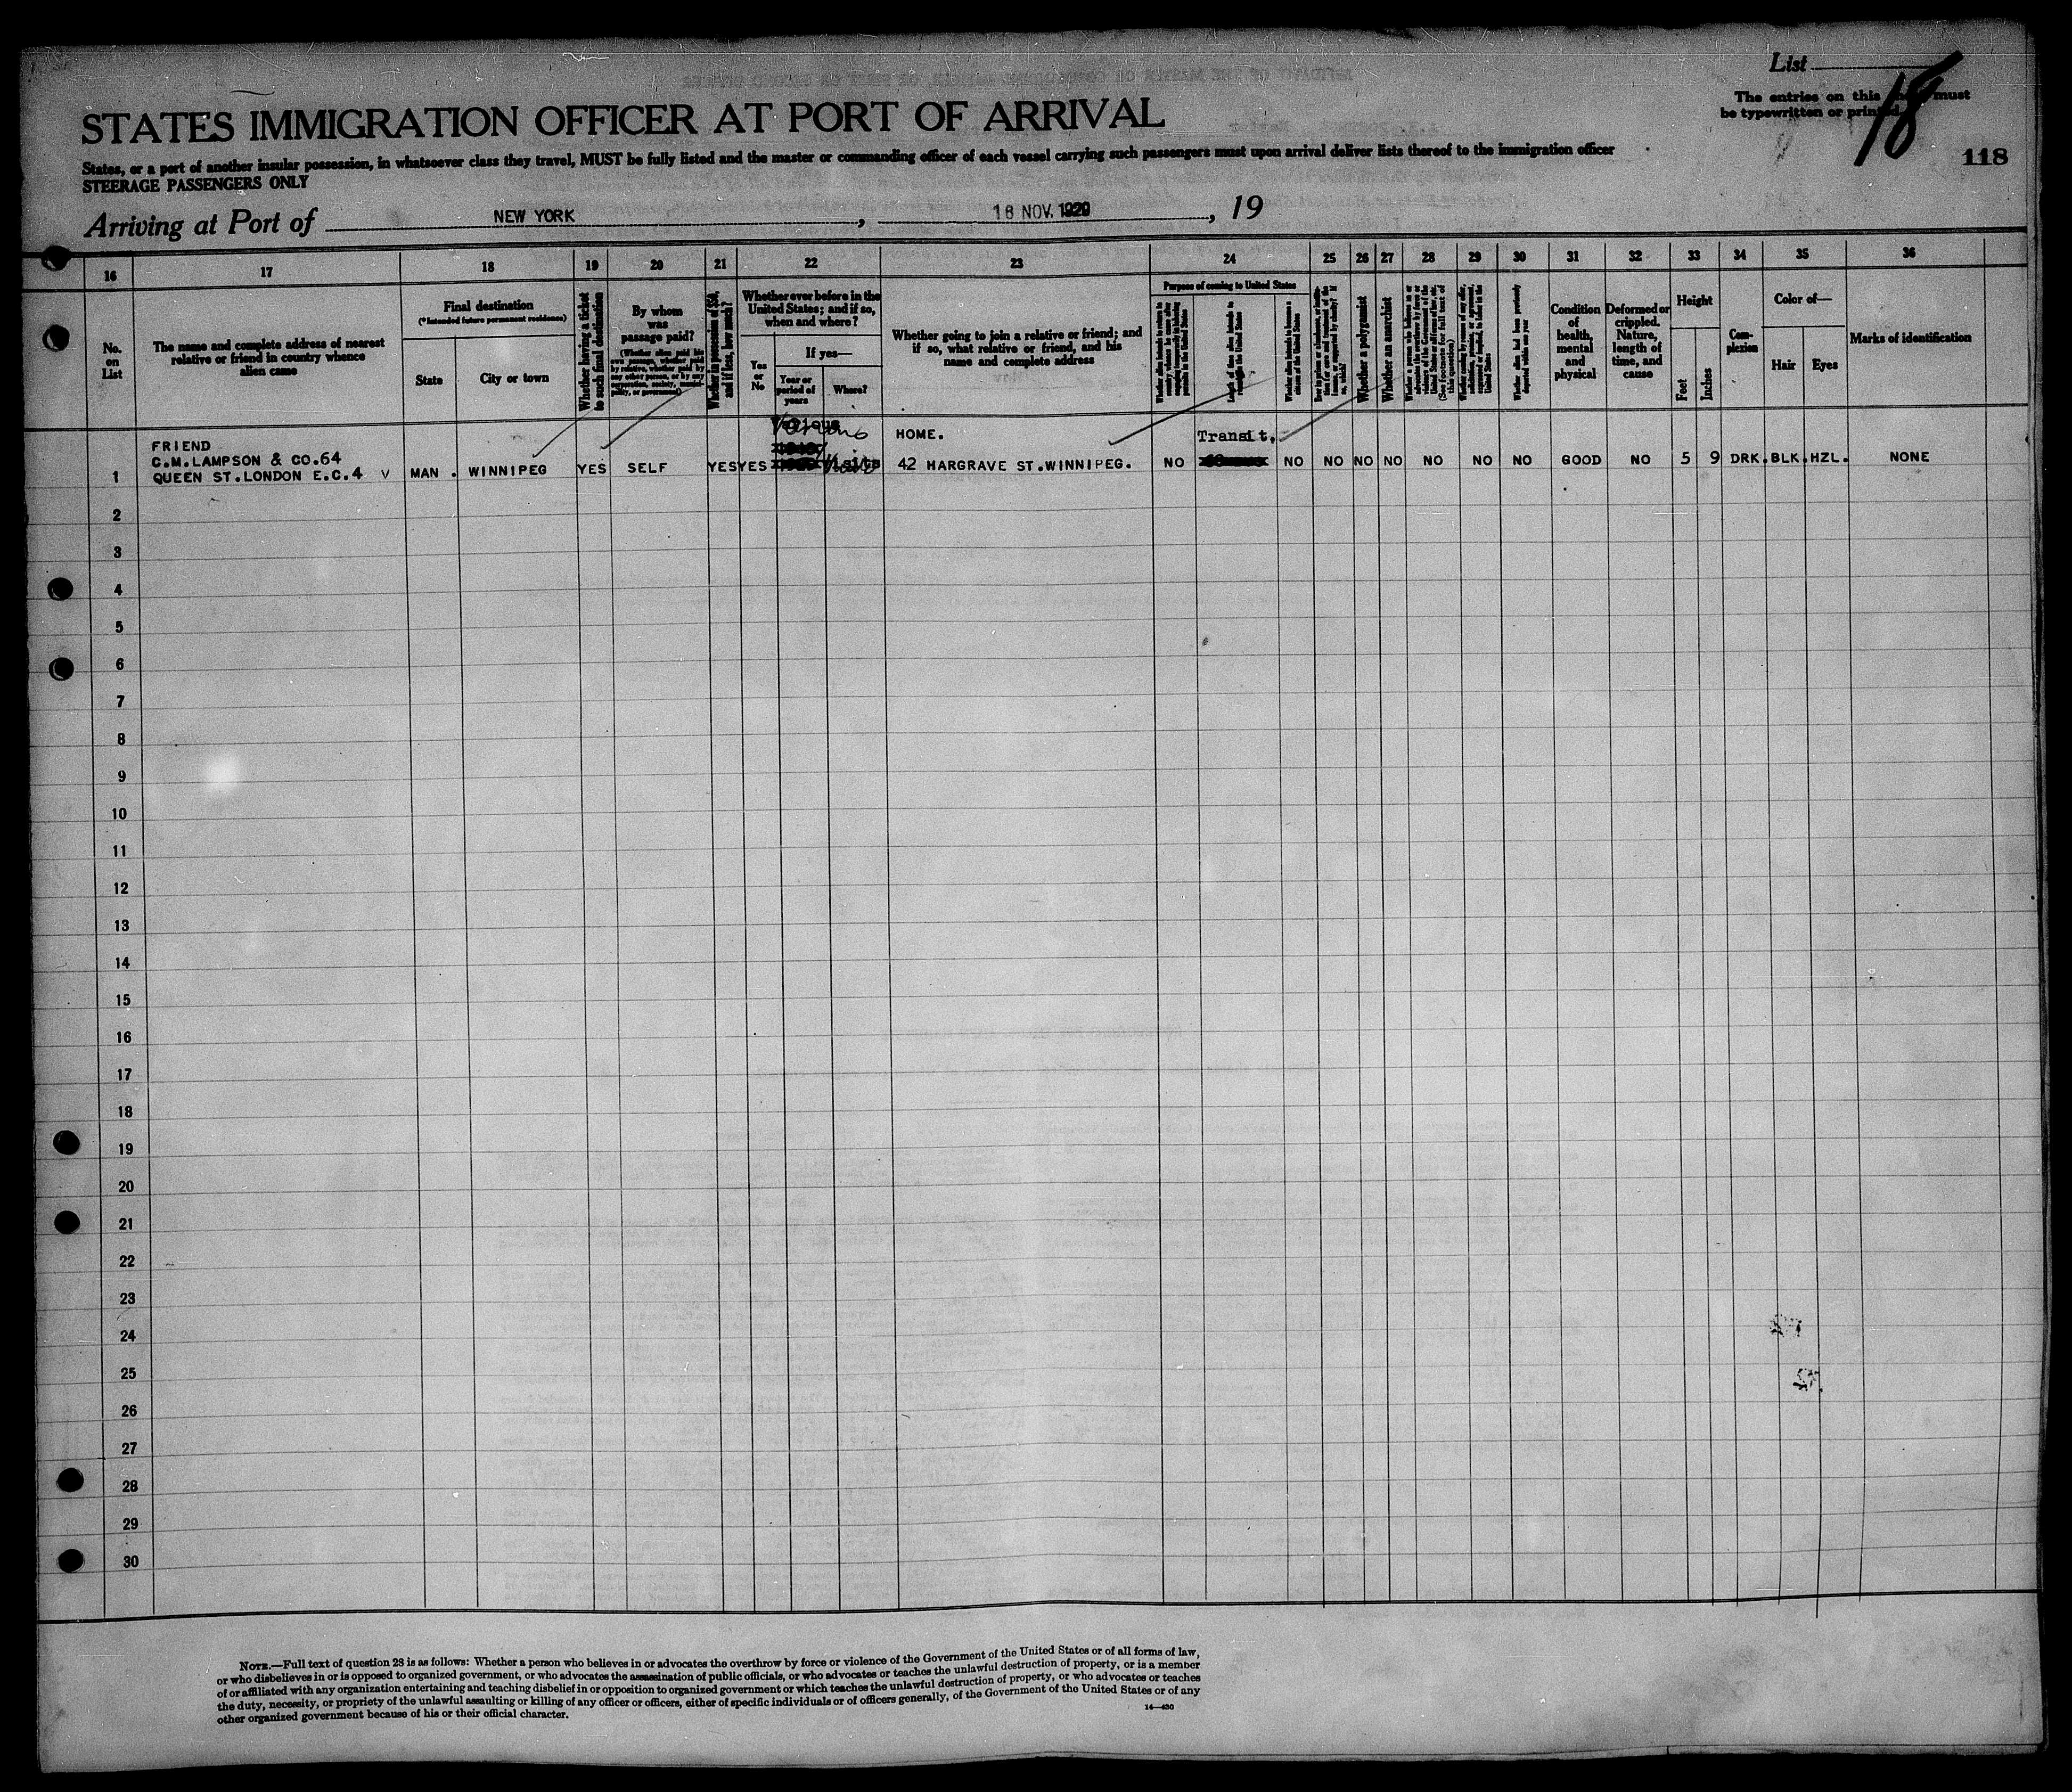 List
18
The entries on this sheet must
be typewritten or printed.
118
STATES IMMIGRATION OFFICER AT PORT OF ARRIVAL
States, or a port of another insular possession, in whatsoever class they travel, MUST be fully listed and the master or commanding officer of each vessel carrying such passengers must upon arrival deliver lists thereof to the immigration officer
STEERAGE PASSENGERS ONLY
Arriving at Port of NEW YORK, 16 NOV. 1929, 19
16 17 18 19 20 21 22 23 24 25 26 27 28 29 30 31 32 33 34 35 36
No.
on
List
The name and complete address of nearest
relative or friend in country whence
alien came
Final destination
(*Intended future permanent residence)
State
City or town
Whether having a ticket
to such final destination
By whom
was
passage paid?
(Whether alien paid his
own passage, whether paid
by relative, whether paid by
any other person, or by any
corporation, society, munici-
pality, or government)
Whether in possession of $50,
and if less, how much?
Whether ever before in the
United States; and if so,
when and where?
Yes
or
No
If yes—
Year or
period of
years
Where?
Whether going to join a relative or friend; and
if so, what relative or friend, and his
name and complete address
Purpose of coming to United States
Length of time alien intends to
remain in the United States
Whether alien intends to become a
citizen of the United States
Whether a polygamist
Whether an anarchist
Whether alien had been previously
deported within one year
Condition
of
health,
mental
and
physical
Deformed or
crippled.
Nature,
length of
time, and
cause
Height
Feet
Inches
Com-
plexion
Color of—
Hair
Eyes
Marks of identification
FRIEND
C.M.LAMPSON & CO.64
1 QUEEN ST.LONDON E.C.4 V MAN . WINNIPEG YES SELF YES YES
Various
HOME.
42 HARGRAVE ST.WINNIPEG.
Transit.
NO NO NO NO NO NO NO NO GOOD NO 5 9 DRK. BLK. HZL. NONE
2
3
4
5
6
7
8
9
10
11
12
13
14
15
16
17
18
19
20
21
22
23
24
25
26
27
28
29
30
NOTE.—Full text of question 28 is as follows: Whether a person who believes in or advocates the overthrow by force or violence of the Government of the United States or of all forms of law,
or who disbelieves in or is opposed to organized government, or who advocates the assassination of public officials, or who advocates or teaches the unlawful destruction of property, or is a member
of or affiliated with any organization entertaining and teaching disbelief in or opposition to organized government or which teaches the unlawful destruction of property, or who advocates or teaches
the duty, necessity, or propriety of the unlawful assaulting or killing of any officer or officers, either of specific individuals or of officers generally, of the Government of the United States or of any
other organized government because of his or their official character.
14—430